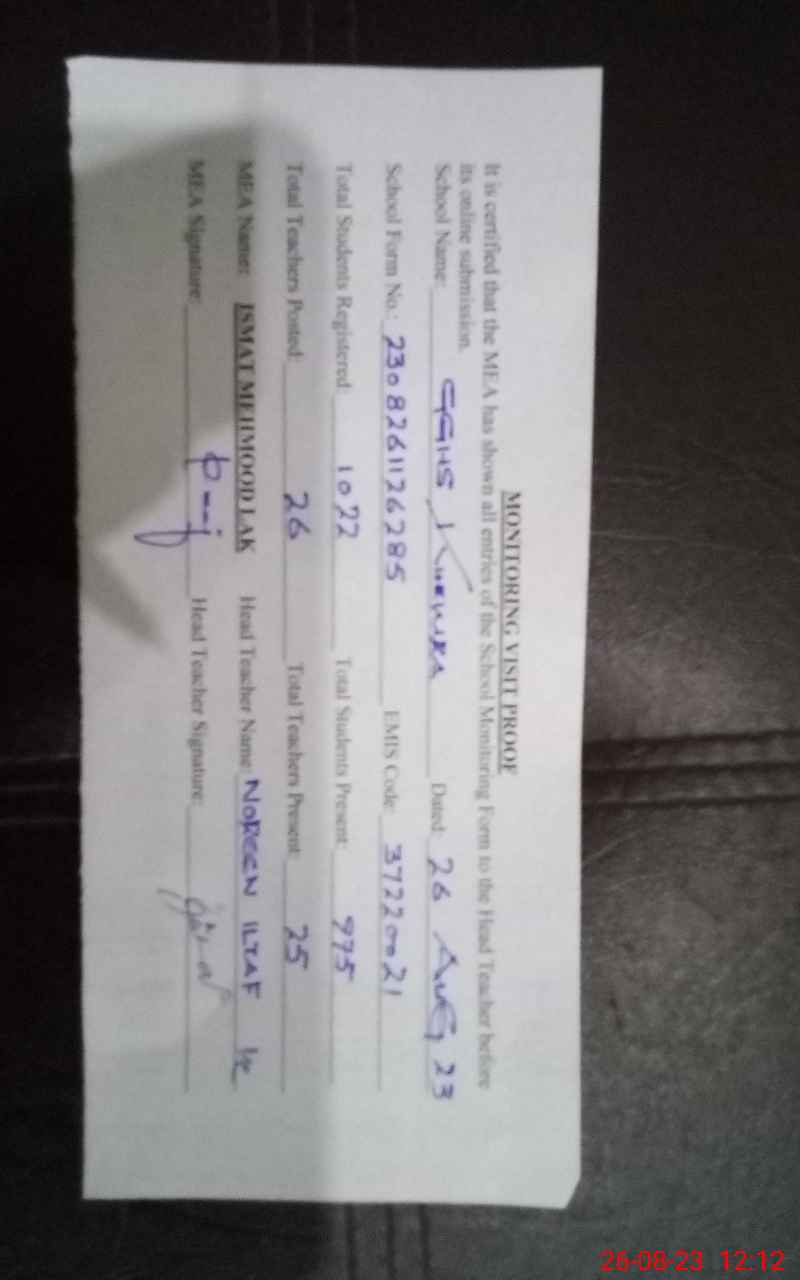 MONITORING VISIT PROOF
It is certified that the MEA has shown all entries of the School Monitoring Form to the Head Teacher before
its online submission.
School Name: GGHS Dated: 26 AUG 23
School Form No.: 2308261126285 EMIS Code: 37220021
Total Students Registered: 1022 Total Students Present: 975
Total Teachers Posted: 26 Total Teachers Present: 25
MEA Name: ISMAT MEHMOOD LAK Head Teacher Name: NOREEN ILTAF
MEA Signature: Head Teacher Signature:
26-08-23 12:12